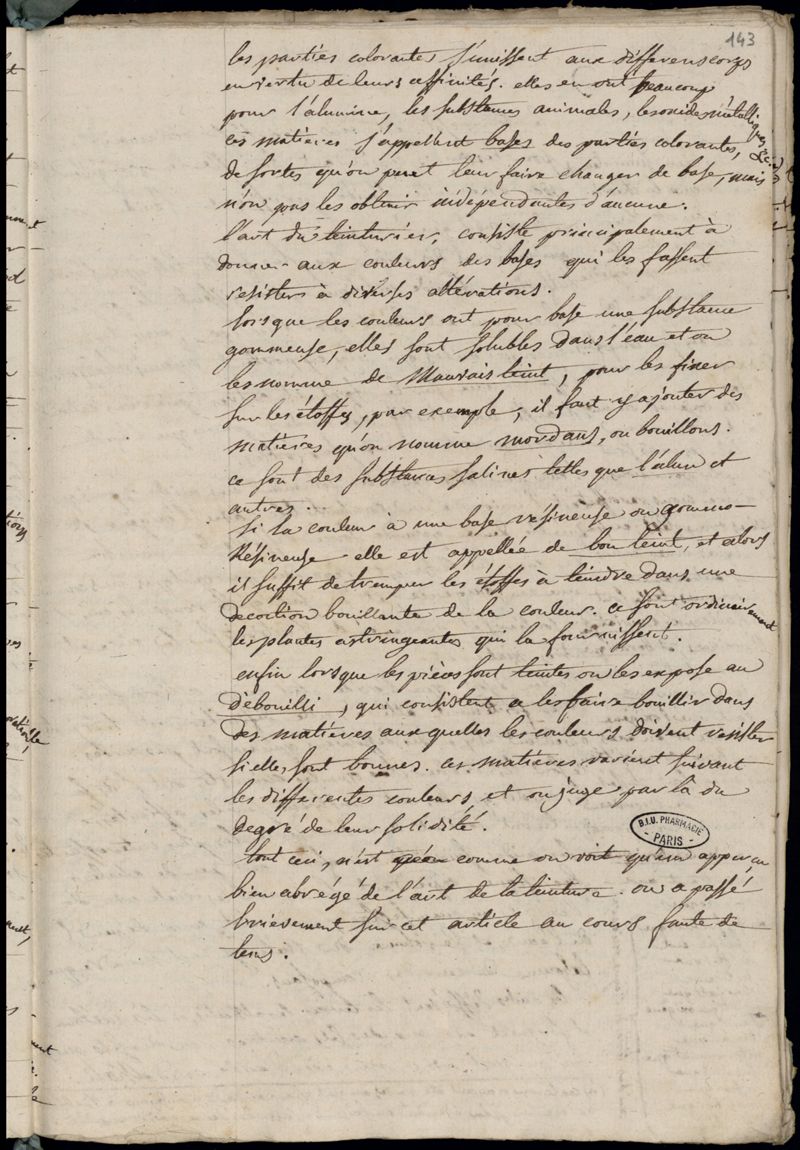 143
les parties colorantes s'unissent aux differens corps
en vertu de leurs affinités. elles en ont beaucoup
pour l'alumine, les substances animales, les oxides métalliques &c.
ces matieres s'appellent bases des parties colorantes,
de sortes qu'on peut leur faire changer de base, mais
non pas les obtenir indépendantes d'aucune.
l'art du teinturier, consiste principalement à
donner aux couleurs des bases qui les fassent
resister à diverses altérations.
lorsque les couleurs ont pour base une substance
gommeuse, elles sont solubles dans l'eau et on
les nomme de mauvais teint, pour les fixer
sur les étoffes, par exemple, il faut y ajouter des
matieres qu'on nomme mordans, ou bouillons.
ce sont des substances salines telles que l'alun et
autres.
si la couleur à une base resineuse ou gommo-
Résineuse elle est appellée de bon teint, et alors
il suffit de tremper les étoffes à teindre dans une
decoction bouillante de la couleur. ce sont ordinairement
les plantes astringeantes qui la fournissent.
enfin lorsque les pièces sont teintes on les expose au
débouilli, qui consistent a les faire bouillir dans
des matieres aux quelles les couleurs doivent resister
si elles sont bonnes. ces matieres varient suivant
les differentes couleurs, et on juge par là du
degré de leur solidité.
B.I.U. PHARMACIE
PARIS
tout ceci, n'est comme on voit qu'un apperçu
bien abrégé de l'art de la teinture. on a passé
brievement sur cet article au cours faute de
tems.